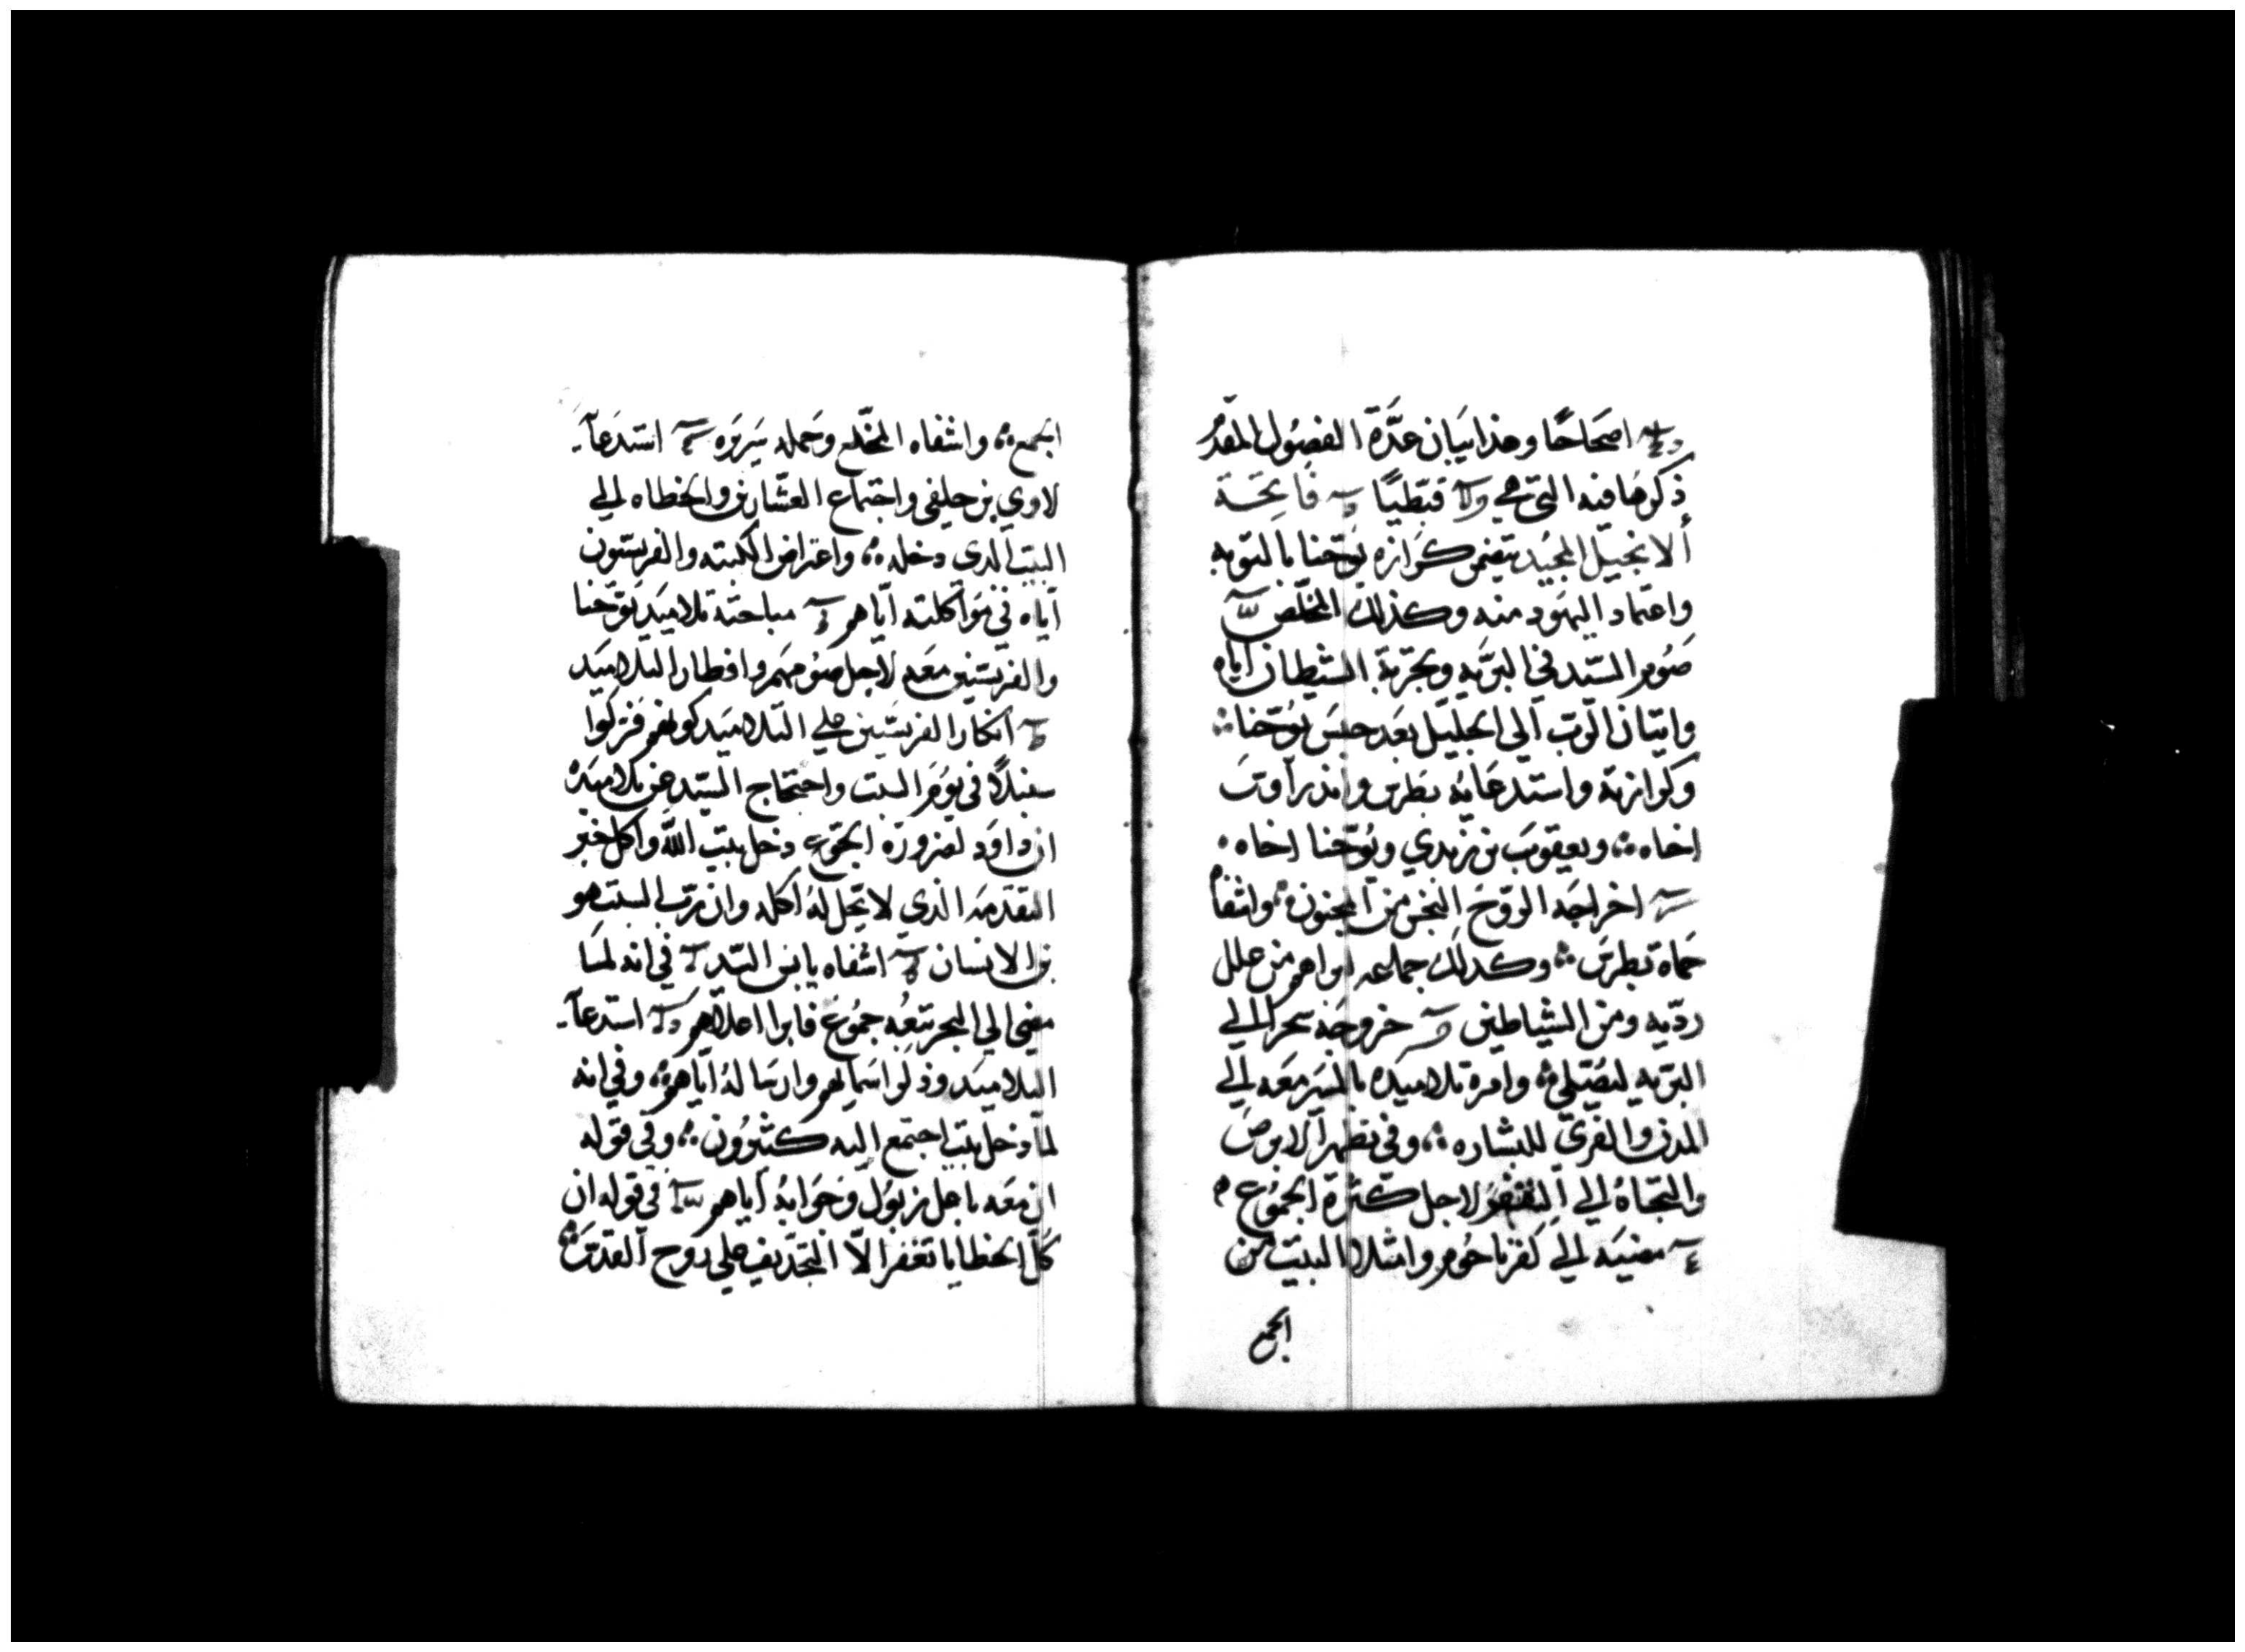 اصحاحًا وهذا بيان عدّة الفصول المقدم
ذكرها فيه التي هي قبطيًا فاتحة
ألانجيل المجيد يتضمن كرازه يوحنا بالتوبه
واعتماد اليهود منه وكذلك المخلص
صوم السيد في البريه وتجربة الشيطان اياه
واتيان الرب الي الجليل بعد حبس يوحنا
وكرازته واستدعايه بطرس واندراوس
اخاه ويعقوب بن زبدي ويوحنا اخاه
اخراجه الروح النجس من المجنون واشفا
حماة بطرس وكدلك جماعه ابراهم من علل
رديه ومن الشياطين خروجه سحرا الي
البريه ليصلي وامره تلاميده بالمسير معه الي
المدن والقرى للبشاره وفي تطهير الابرص
والتجاه الي القفر لاجل كثرة الجموع
مضيه الي كفرناحوم وامتلا البيت من
الجمع
الجمع واشفاه المخلع وحمله سريره استدعآ
لاوي بن حلفي واجتماع العشارين والخطاه الي
البيت الدي دخله واعتراض الكتبه والفريسيون
آياه في مواكلته اياهم مباحتة تلاميد يوحنا
والفريسيين معه لاجل صومهم وافطار التلاميد
انكار الفريسيين علي التلاميد كونهم فركوا
سنبلًا في يوم السبت واحتجاج السيد عن تلاميده
ان داود لضرورة الجوع دخل بيت الله واكل خبز
التقدمه الذي لا يحل له اكله وان رب السبت هو
بن الانسان اشفاه يابس اليد في انه لما
مضي الي البحر تبعه جموع فابرا اعلاهم استدعآ
التلاميد وذكر اسمايهم وارساله اياهم وفي انه
لما دخل بيت اجتمع اليه كثيرون وفي قوله
ان معه باعل زبول وجوابه اياهم في قوله ان
كل الخطايا تغفر الا التجديف علي روح القدس